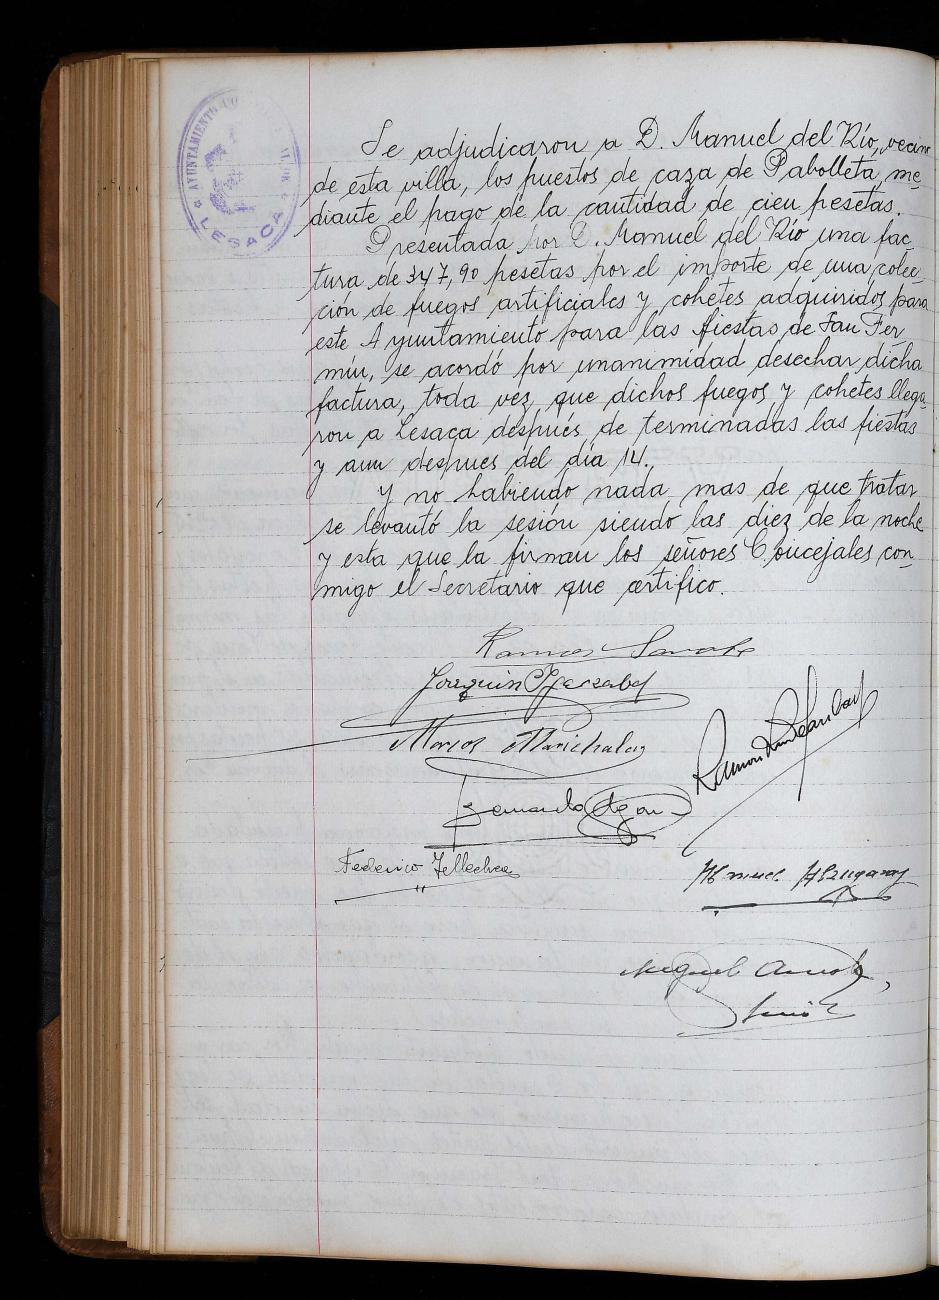 Se adjudicaron a D. Manuel del Río, vecino
de esta villa, los puestos de caza de Pabolleta, me-
diante el pago de la cantidad de cien pesetas.
Presentada por D. Manuel del Río una fac-
tura de 347,90 pesetas por el importe de una colec-
ción de fuegos artificiales y cohetes adquiridos para
este Ayuntamiento para las fiestas de San Fer
mín, se acordó por unanimidad desechar dicha
factura, toda vez que dichos fuegos y cohetes llega-
ron a Lesaca después de terminadas las fiestas
y aun despues del día 14.
Y no habiendo nada mas de que tratar
se levantó la sesión siendo las diez de la noche
y esta que la firman los señores Concejales con-
migo el Secretario que certifico.
AYUNTAMIENTO
LESACA
Joaquin
Marcos Marichalar
Ramón
Bernardo
Federico Tellechea
Manuel
Miguel